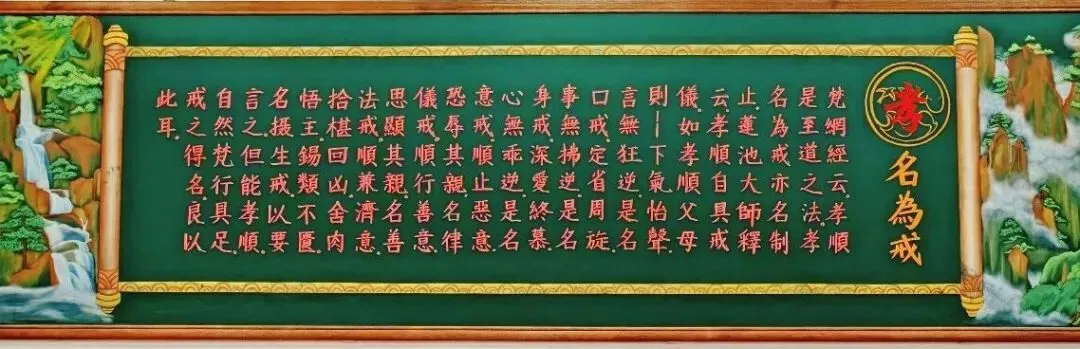 孝
名為戒
梵網經云孝順
是至道之法孝
名為戒亦名制
止.蓮池大師釋
云.孝順自具戒
儀.如孝順父母
則一下氣怡聲.
言無狂逆.是名
口戒.定省周旋.
事無拂逆.是名
身戒.深愛終慕
心無乖逆.是名
意戒.順止惡意.
恐辱其親.名律
儀戒.順行善意.
思顯其親.名善
法戒.順兼濟意.
拾椹回凶舍肉
悟主.錫類不匱.
名摄生戒.以要
言之.但能孝順.
自然梵行具足.
戒之得名.良以
此耳.